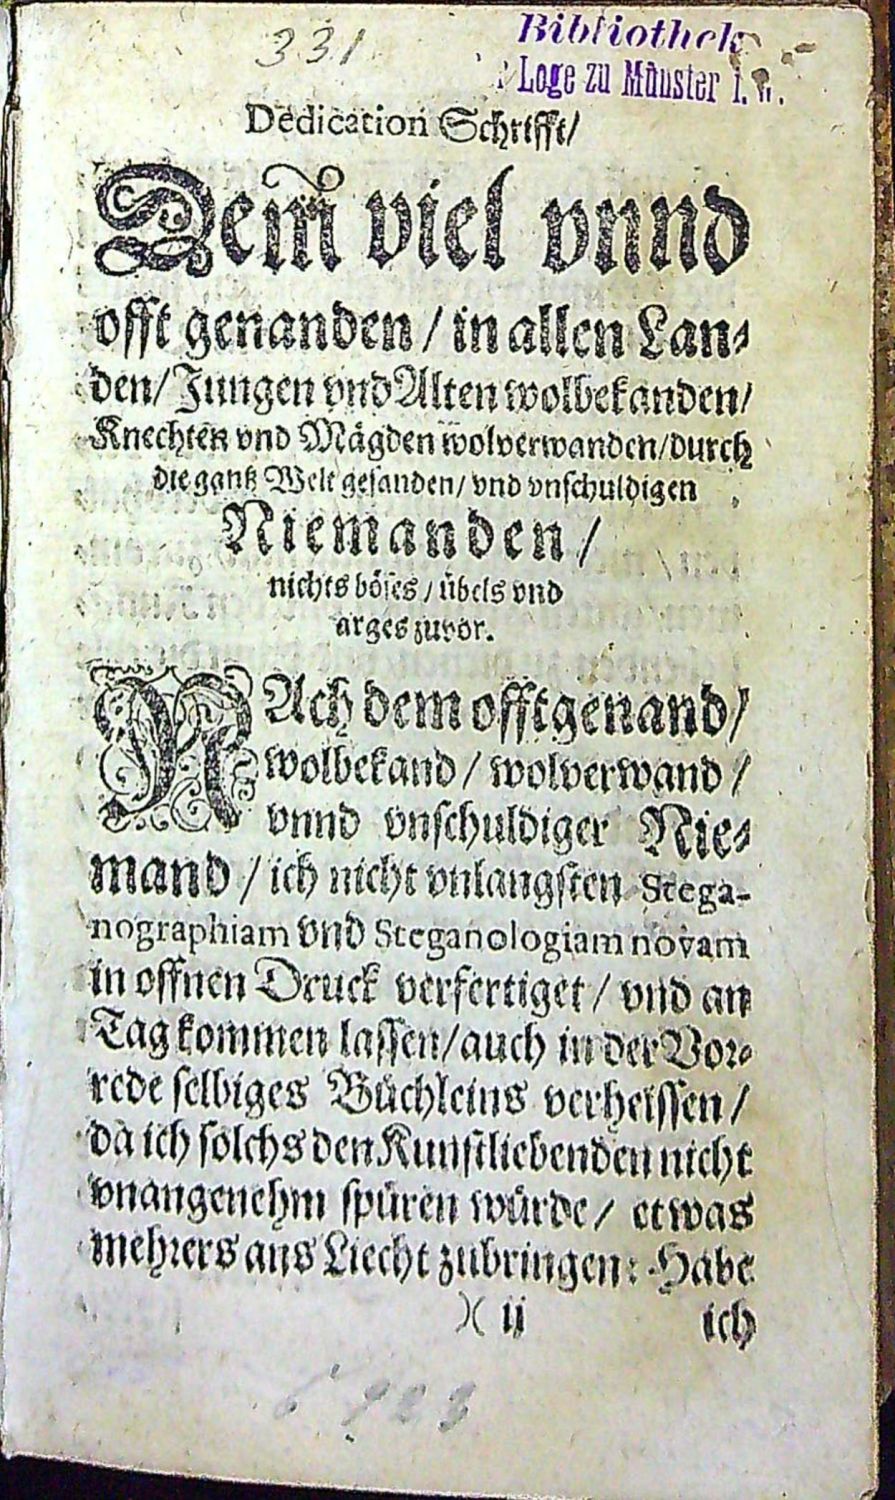 331
Bibliothek
Loge zu Münster i. W.
Dedication Schrifft/
Dem̃ viel vnnd
offt genanden / in allen Lan-
den/Jungen vnd Alten wolbekanden/
Knechten vnd Mägden wolverwanden/durch
die gantz Welt gesanden/ vnd vnschuldigen
Niemanden /
nichts böses / übels vnd
arges zuvor.
NAch dem offtgenand/
wolbekand / wolverwand /
vnnd vnschuldiger Nie-
mand / ich nicht vnlangsten Stega-
nographiam vnd Steganologiam novam
in offnen Druck verfertiget / vnd an
Tag kommen lassen/auch in der Vor-
rede selbiges Büchleins verheissen /
da ich solchs den Kunstliebenden nicht
vnangenehm spüren würde / etwas
mehrers ans Liecht zubringen: Habe
)( ij ich